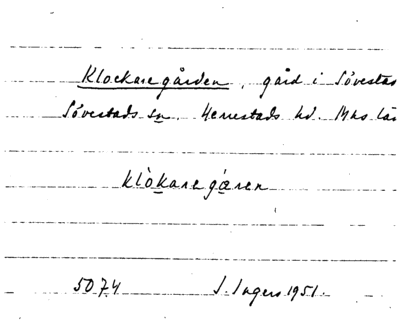 Klockaregården, gård i Sövestad
Sövestads sn. Herrestads hd. Mhs lä
klòkaregæren
5074 I. Ingers 1951.